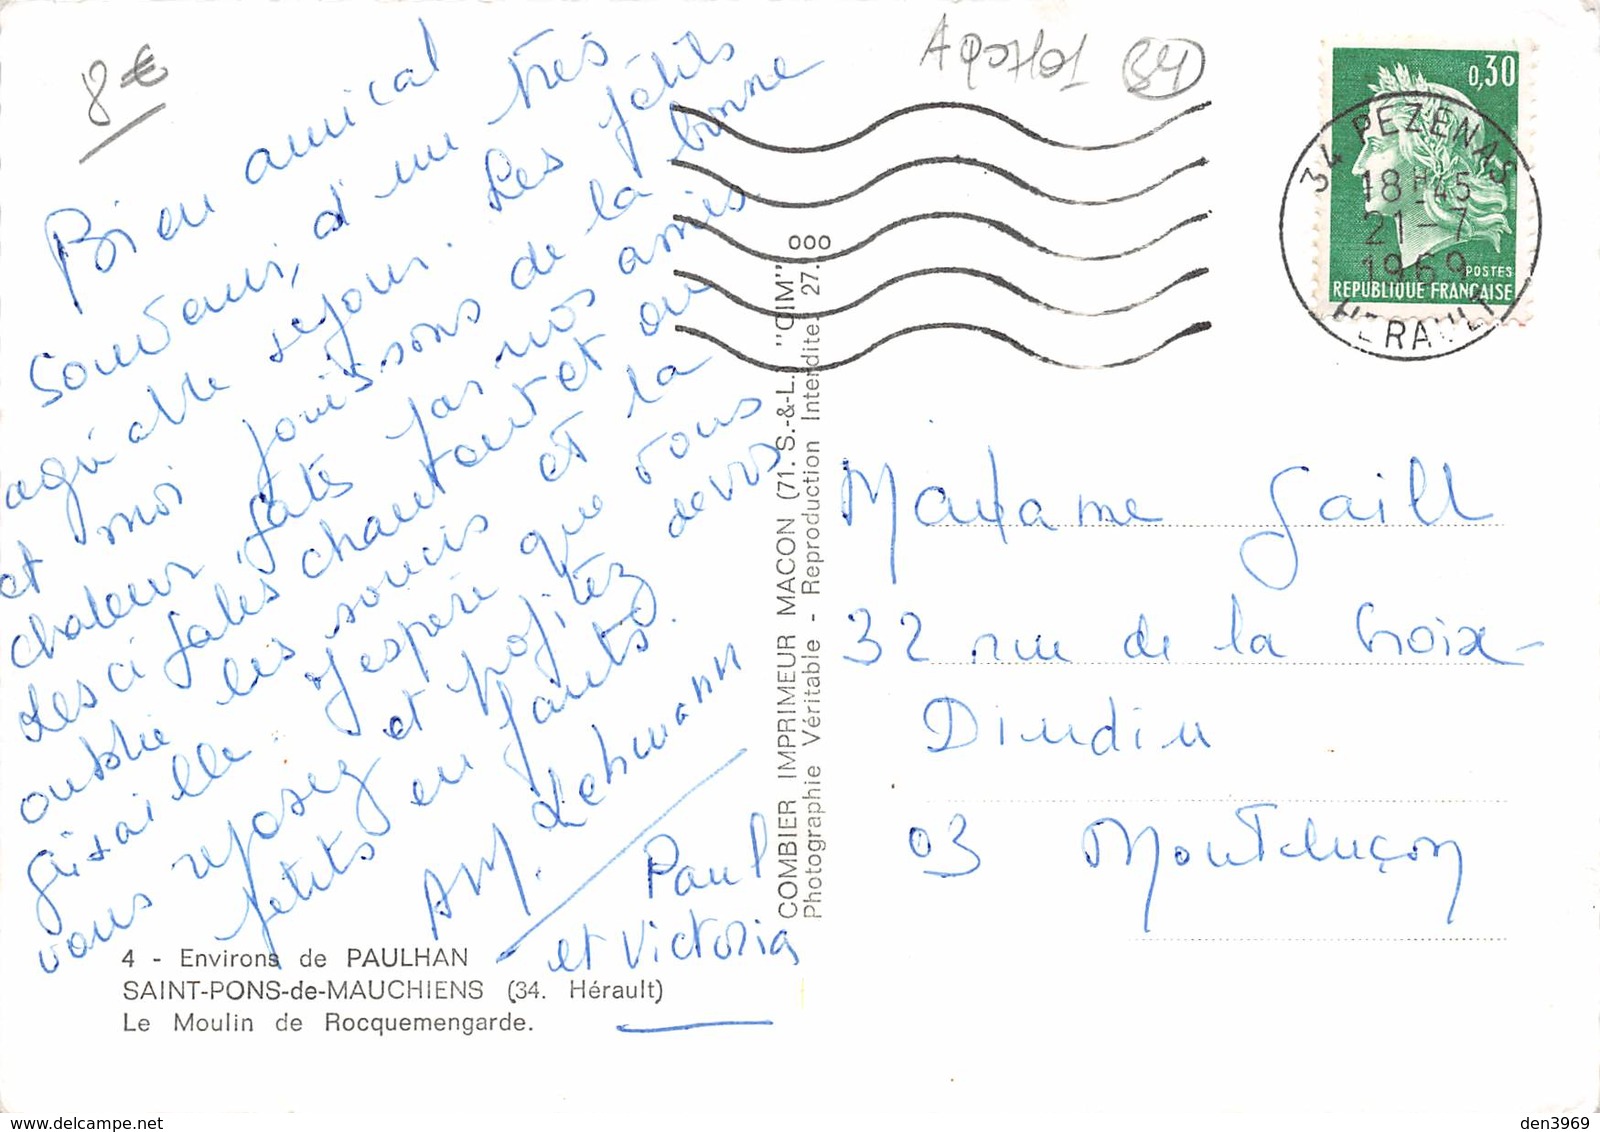 8€
Bien amical
souvenir, d'un très
agréable séjour. Les petits
et moi jouissons de la bonne
chaleur, gatés par nos amis
Les cigales chantent et on
oublie les soucis et la
grisaille. J'espère que vous
vous reposez et profitez de vos
petits enfants.
AM. Lehmann
Paul
et Victoria
4 - Environs de PAULHAN
SAINT-PONS-de-MAUCHIENS (34. Hérault)
Le Moulin de Rocquemengarde.
COMBIER IMPRIMEUR MACON (71. S.-&-L.) "CIM"
Photographie Véritable - Reproduction Interdite 27.
000
34
0,30
POSTES
REPUBLIQUE FRANÇAISE
34 PEZENAS
18H45
21-7
1969
HERAULT
Madame Gaill
32 rue de la Croix-
Dindin
03 Montluçon
delcampe.net
den3969